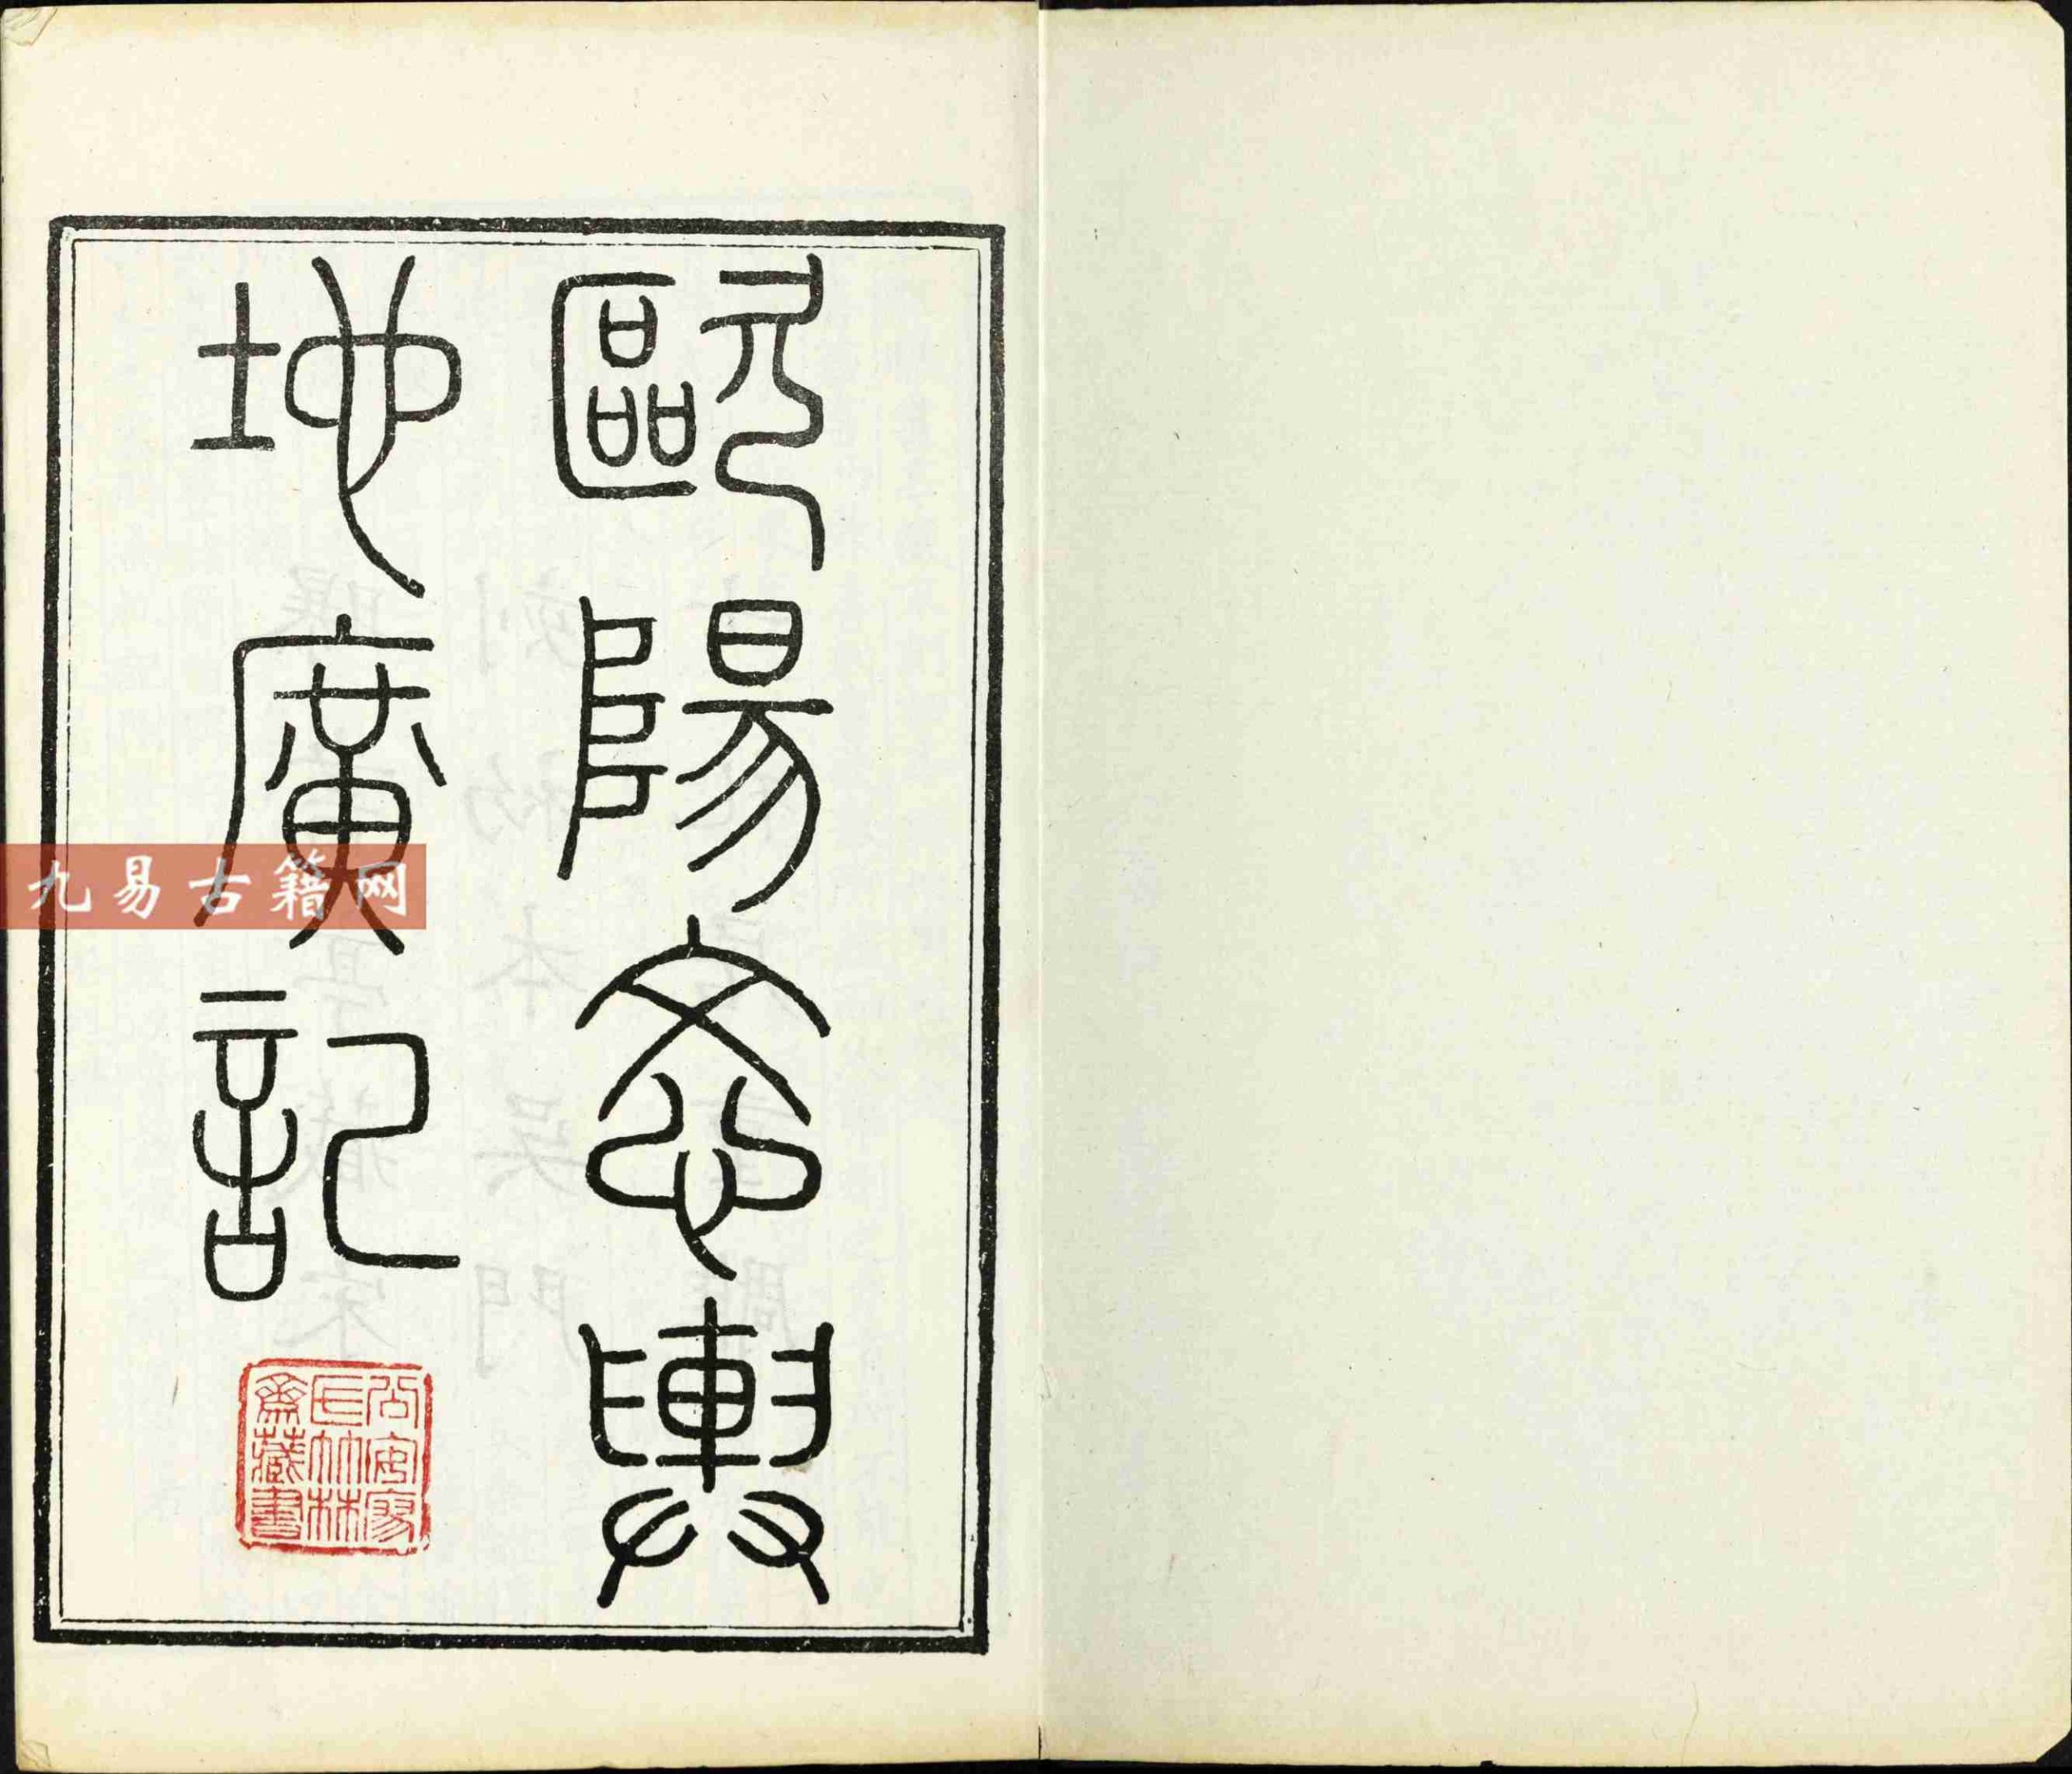 歐陽忞輿
地廣記
九易古籍网